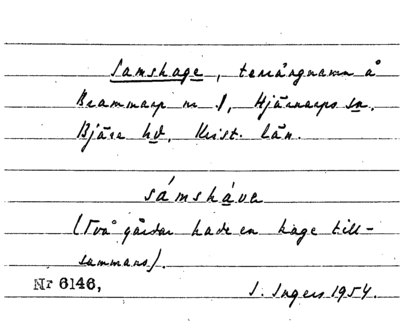 Samshage, terrängnamn å
Brammarp nr 1, Hjärnarps sn.
Bjäre hd, Krist. län.
sámsháva
(Två gårdar hade en hage till-
sammans).
Nr 6146, I. Ingers 1954.